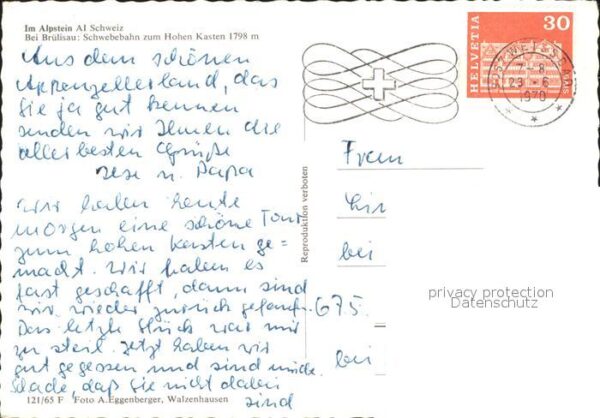 Im Alpstein AI Schweiz
Bei Brülisau: Schwebebahn zum Hohen Kasten 1798 m
Aus dem schönen
Appenzellerland, das
Sie ja gut kennen
senden wir Ihnen die
allerbesten Grüße
u. Papa
Wir haben heute
morgen eine schöne Tour
zum hohen Kasten ge=
macht. Wir haben es
fast geschafft, dann sind
wir wieder zurück gelaufen.
Das letzte Stück war mir
zu steil. Jetzt haben wir
gut gegessen und sind müde.
Schade, daß Sie nicht dabei
sind
121/65 F Foto A. Eggenberger, Walzenhausen
Reproduktion verboten
HELVETIA
30
WEISSBAD
1970
Frau
bei
675
bei
privacy protection
Datenschutz